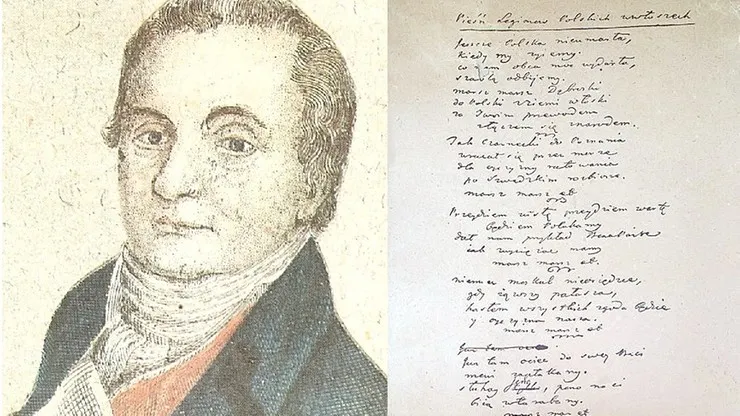 Pieśń Legionów Polskich we Włoszech
Jeszcze Polska nieumarła,
kiedy my żyjemy.
co nam obca moc wydarła,
szablą odbijemy.
marsz marsz Dąbroski
do Polski z ziemi włoski
za Twoim przewodem
złączem się z narodem.
Jak Czarnecki do Poznania
wracał się przez morze
dla ojczyzny ratowania
po szwedzkim rozbiorze.
marsz marsz et
Przejdziem wisłę przejdziem wartę
będziem Polakamy
dał nam przykład Bonaparte
jak zwyciężać mamy
marsz marsz et.
niemiec moskal nieosiędzie,
gdy jąwszy pałasza,
hasłem wszystkich zgoda będzie
y ojczyzna nasza.
marsz marsz et
Już tam ociec
Już tam ociec do swey Basi
mówi zapłakany.
słuchay, pono nasi
biią w tarabany.
marsz marsz et